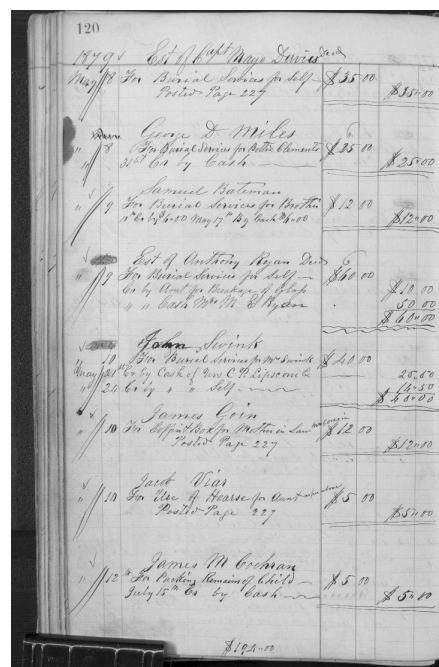 120
1879 Est of Capt Mayo Davies Decd
May 8 For Burial Services for Self $35 00
Posted Page 227 $35.00
George D Miles
" 8 For Burial Services for Bettie Clements $25 00
31st Cr by Cash $25.00
Samuel Bateman
" 9 For Burial Services for Brother $12 00
Cr by $6.00 May 17th By Cash $6.00 $12.00
Est of Anthony Ryan Decd
" 9 For Burial Services for Self $60 00
Cr by Amt for Breakage of Glass $10 00
" " Cash Mrs M E Ryan 50 00
$60.00
John Swink
10 For Burial Services for Mrs Swink $40 00
May 21st Cr by Cash of Mrs C R Lipscomb 25.50
24 Cr by " " Self 14.50
$40.00
James Coin
" 10 For Box for Mother in Law $12 00
Posted Page 227 $12.00
Jacob Vias
" 10 For Use of Hearse for Aunt $5 00
Posted Page 227 $5.00
James M Cochran
" 12 For Packing Remains of Child $5 00
July 15th Cr by Cash $5.00
$194.00